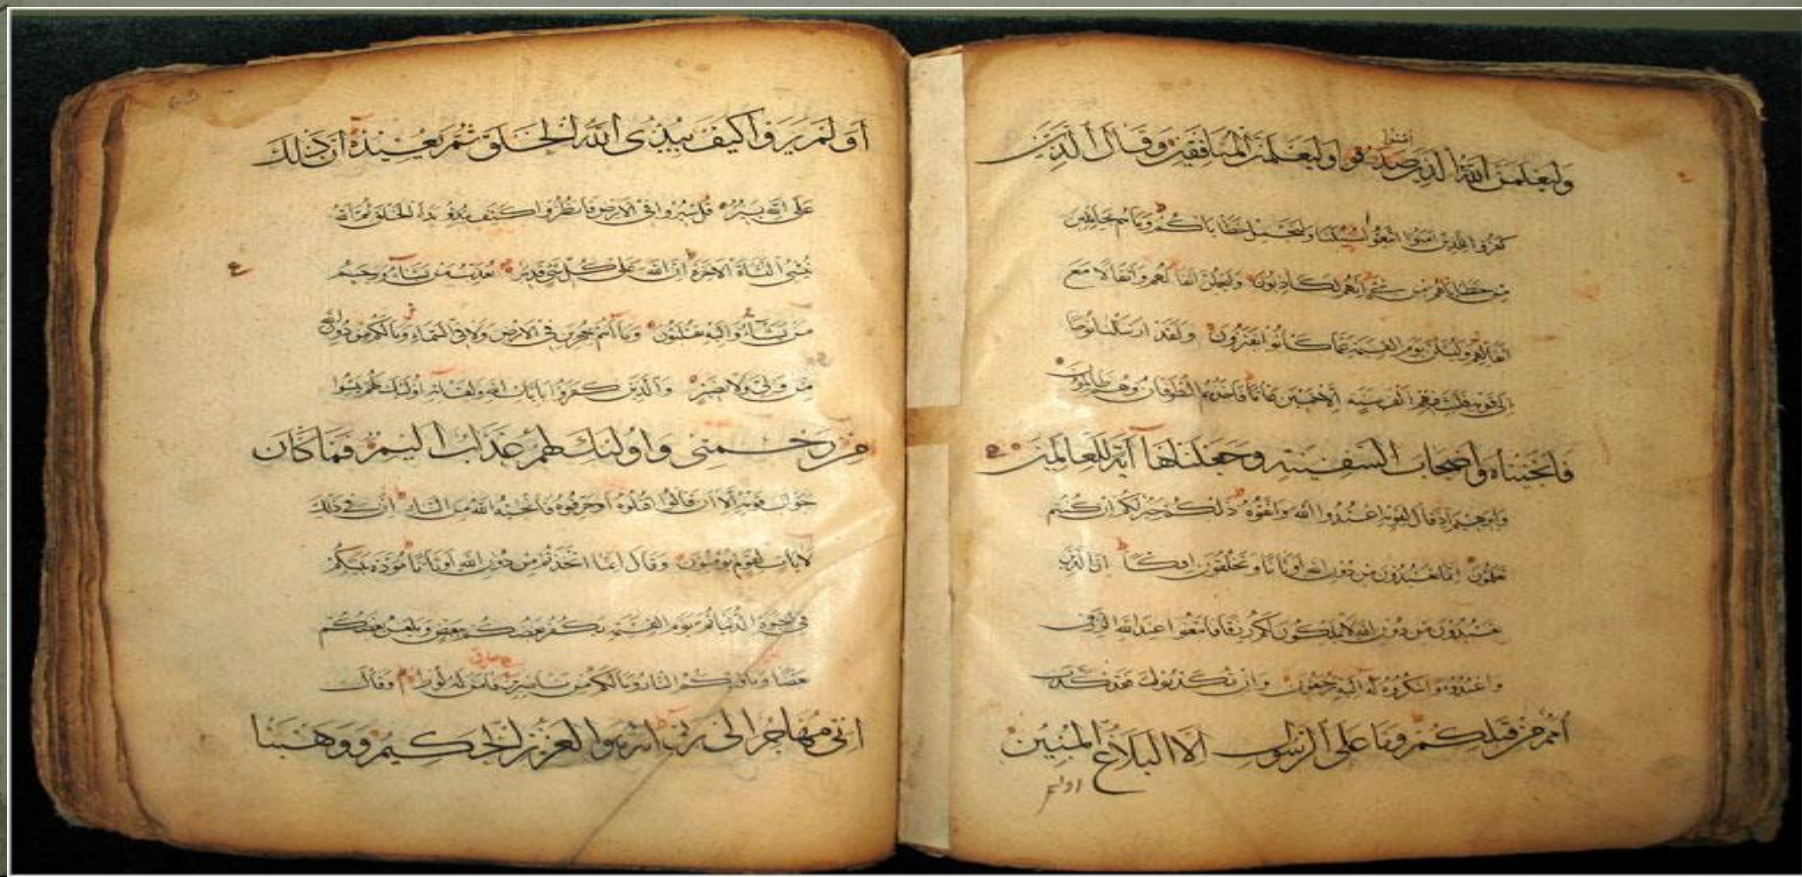 امنوا
وليعلمن الله الذين صدقوا وليعلمن المنافقين وقال الذين
كفروا للذين امنوا اتبعوا سبيلنا ولنحمل خطاياكم وما هم بحاملين
من خطاياهم من شيء انهم لكاذبون وليحملن اثقالهم واثقالا مع
اثقالهم وليسئلن يوم القيمة عما كانوا يفترون ولقد ارسلنا نوحا
الى قومه فلبث فيهم الف سنة الا خمسين عاما فاخذهم الطوفان وهم ظالمون
فانجيناه واصحاب السفينة وجعلناها آية للعالمين
وابرهيم اذ قال لقومه اعبدوا الله واتقوه ذلكم خير لكم ان كنتم
تعلمون انما تعبدون من دون الله اوثانا وتخلقون افكا ان الذين
تعبدون من دون الله لا يملكون لكم رزقا فابتغوا عند الله الرزق
واعبدوه واشكروا له اليه ترجعون وان تكذبوا فقد كذب
امم من قبلكم وما على الرسول الا البلاغ المبين
اولم
اولم يروا كيف يبدئ الله الخلق ثم يعيده ان ذلك
على الله يسير قل سيروا في الارض فانظروا كيف بدأ الخلق ثم الله
ينشئ النشأة الاخرة ان الله على كل شئ قدير يعذب من يشاء ويرحم
من يشاء واليه تقلبون وما انتم بمعجزين في الارض ولا في السماء وما لكم من دون الله
من ولي ولا نصير والذين كفروا بايات الله ولقائه اولئك يئسوا
من رحمتي واولئك لهم عذاب اليم فما كان
جواب قومه الا ان قالوا اقتلوه او حرقوه فانجيه الله من النار ان في ذلك
لايات لقوم يؤمنون وقال انما اتخذتم من دون الله اوثانا مودة بينكم
في الحيوة الدنيا ثم يوم القيمة يكفر بعضكم ببعض ويلعن بعضكم
بعضا وماويكم النار وما لكم من ناصرين فامن له لوط وقال
اني مهاجر الى ربي انه هو العزيز الحكيم ووهبنا